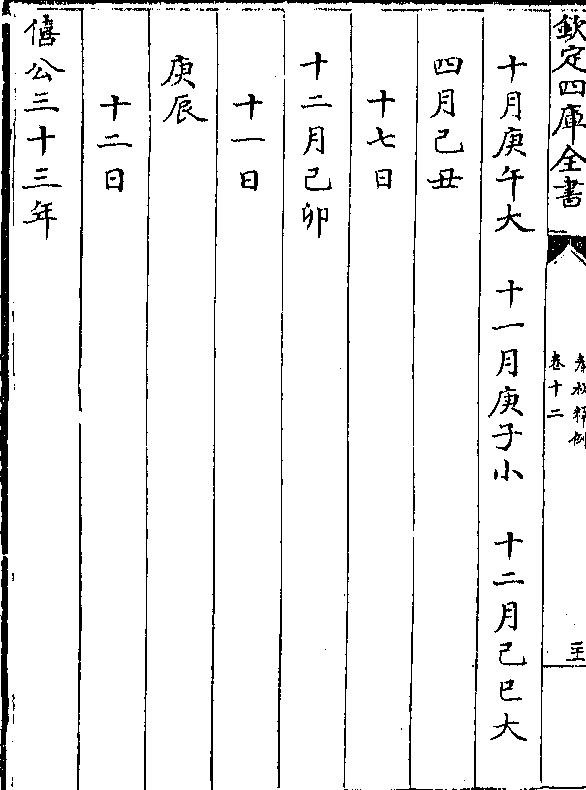 欽定四庫全書
春秋釋例
卷十二
十月庚午大 十一月庚子小 十二月己巳大
四月己丑
十七日
十二月己卯
十一日
庚辰
十二日
僖公三十三年